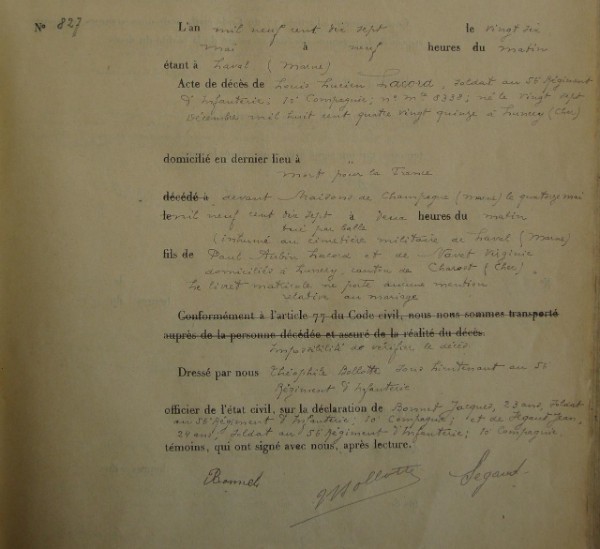 No 827
L'an mil neuf cent dix sept le vingt six
mai à neuf heures du matin
étant à Laval (Marne)
Acte de décès de Louis Lucien Lacord, soldat au 55 Régiment
d'Infanterie; 10e Compagnie; no mle 8338; né le vingt sept
décembre mil huit cent quatre vingt quinze à Lunery (Cher)
domicilié en dernier lieu à "
mort pour la France
décédé à devant Maisons de Champagne (Marne) le quatorze mai
le mil neuf cent dix sept à deux heures du matin
tué par balle
(inhumé au cimetière militaire de Laval (Marne)
fils de Paul Aubin Lacord et de Virginie
domiciliés à Lunery, canton de Charost (Cher).
Le livret matricule ne porte aucune mention
relative au mariage
Conformément à l'article 77 du Code civil, nous nous sommes transporté
auprès de la personne décédée et assuré de la réalité du décès.
Impossibilité de vérifier le décès
Dressé par nous Théophile Bollotte Sous Lieutenant au
Régiment d'Infanterie
officier de l'état civil, sur la déclaration de Bonnet Jacques, 23 ans, soldat
au Régiment d'Infanterie; 10e Compagnie; et de Segaud Jean,
24 ans, soldat au 55 Régiment d'Infanterie; 10e Compagnie
témoins, qui ont signé avec nous, après lecture.
Bonnet Bollotte Segaud